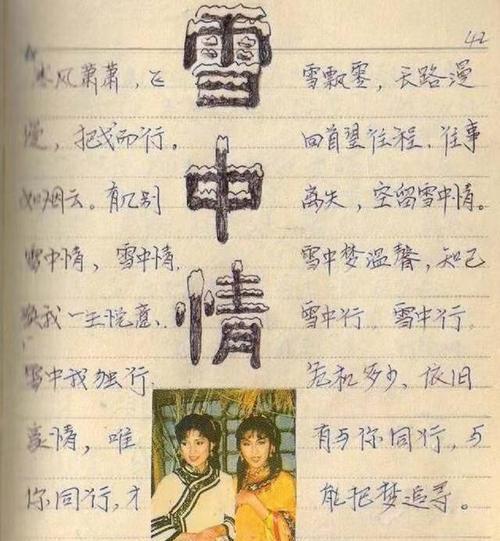 雪中情
42
寒风萧萧，飞雪飘零，长路漫
漫，把戈而行。回首望征程，往事
如烟云。有几别离失，空留雪中情。
雪中情，雪中情．雪中梦温馨，知己
我一生意．雪中行 雪中行．
雪中我独行，危机多少、依旧
豪情，唯有与你同行，与
你同行，才能把梦追寻。